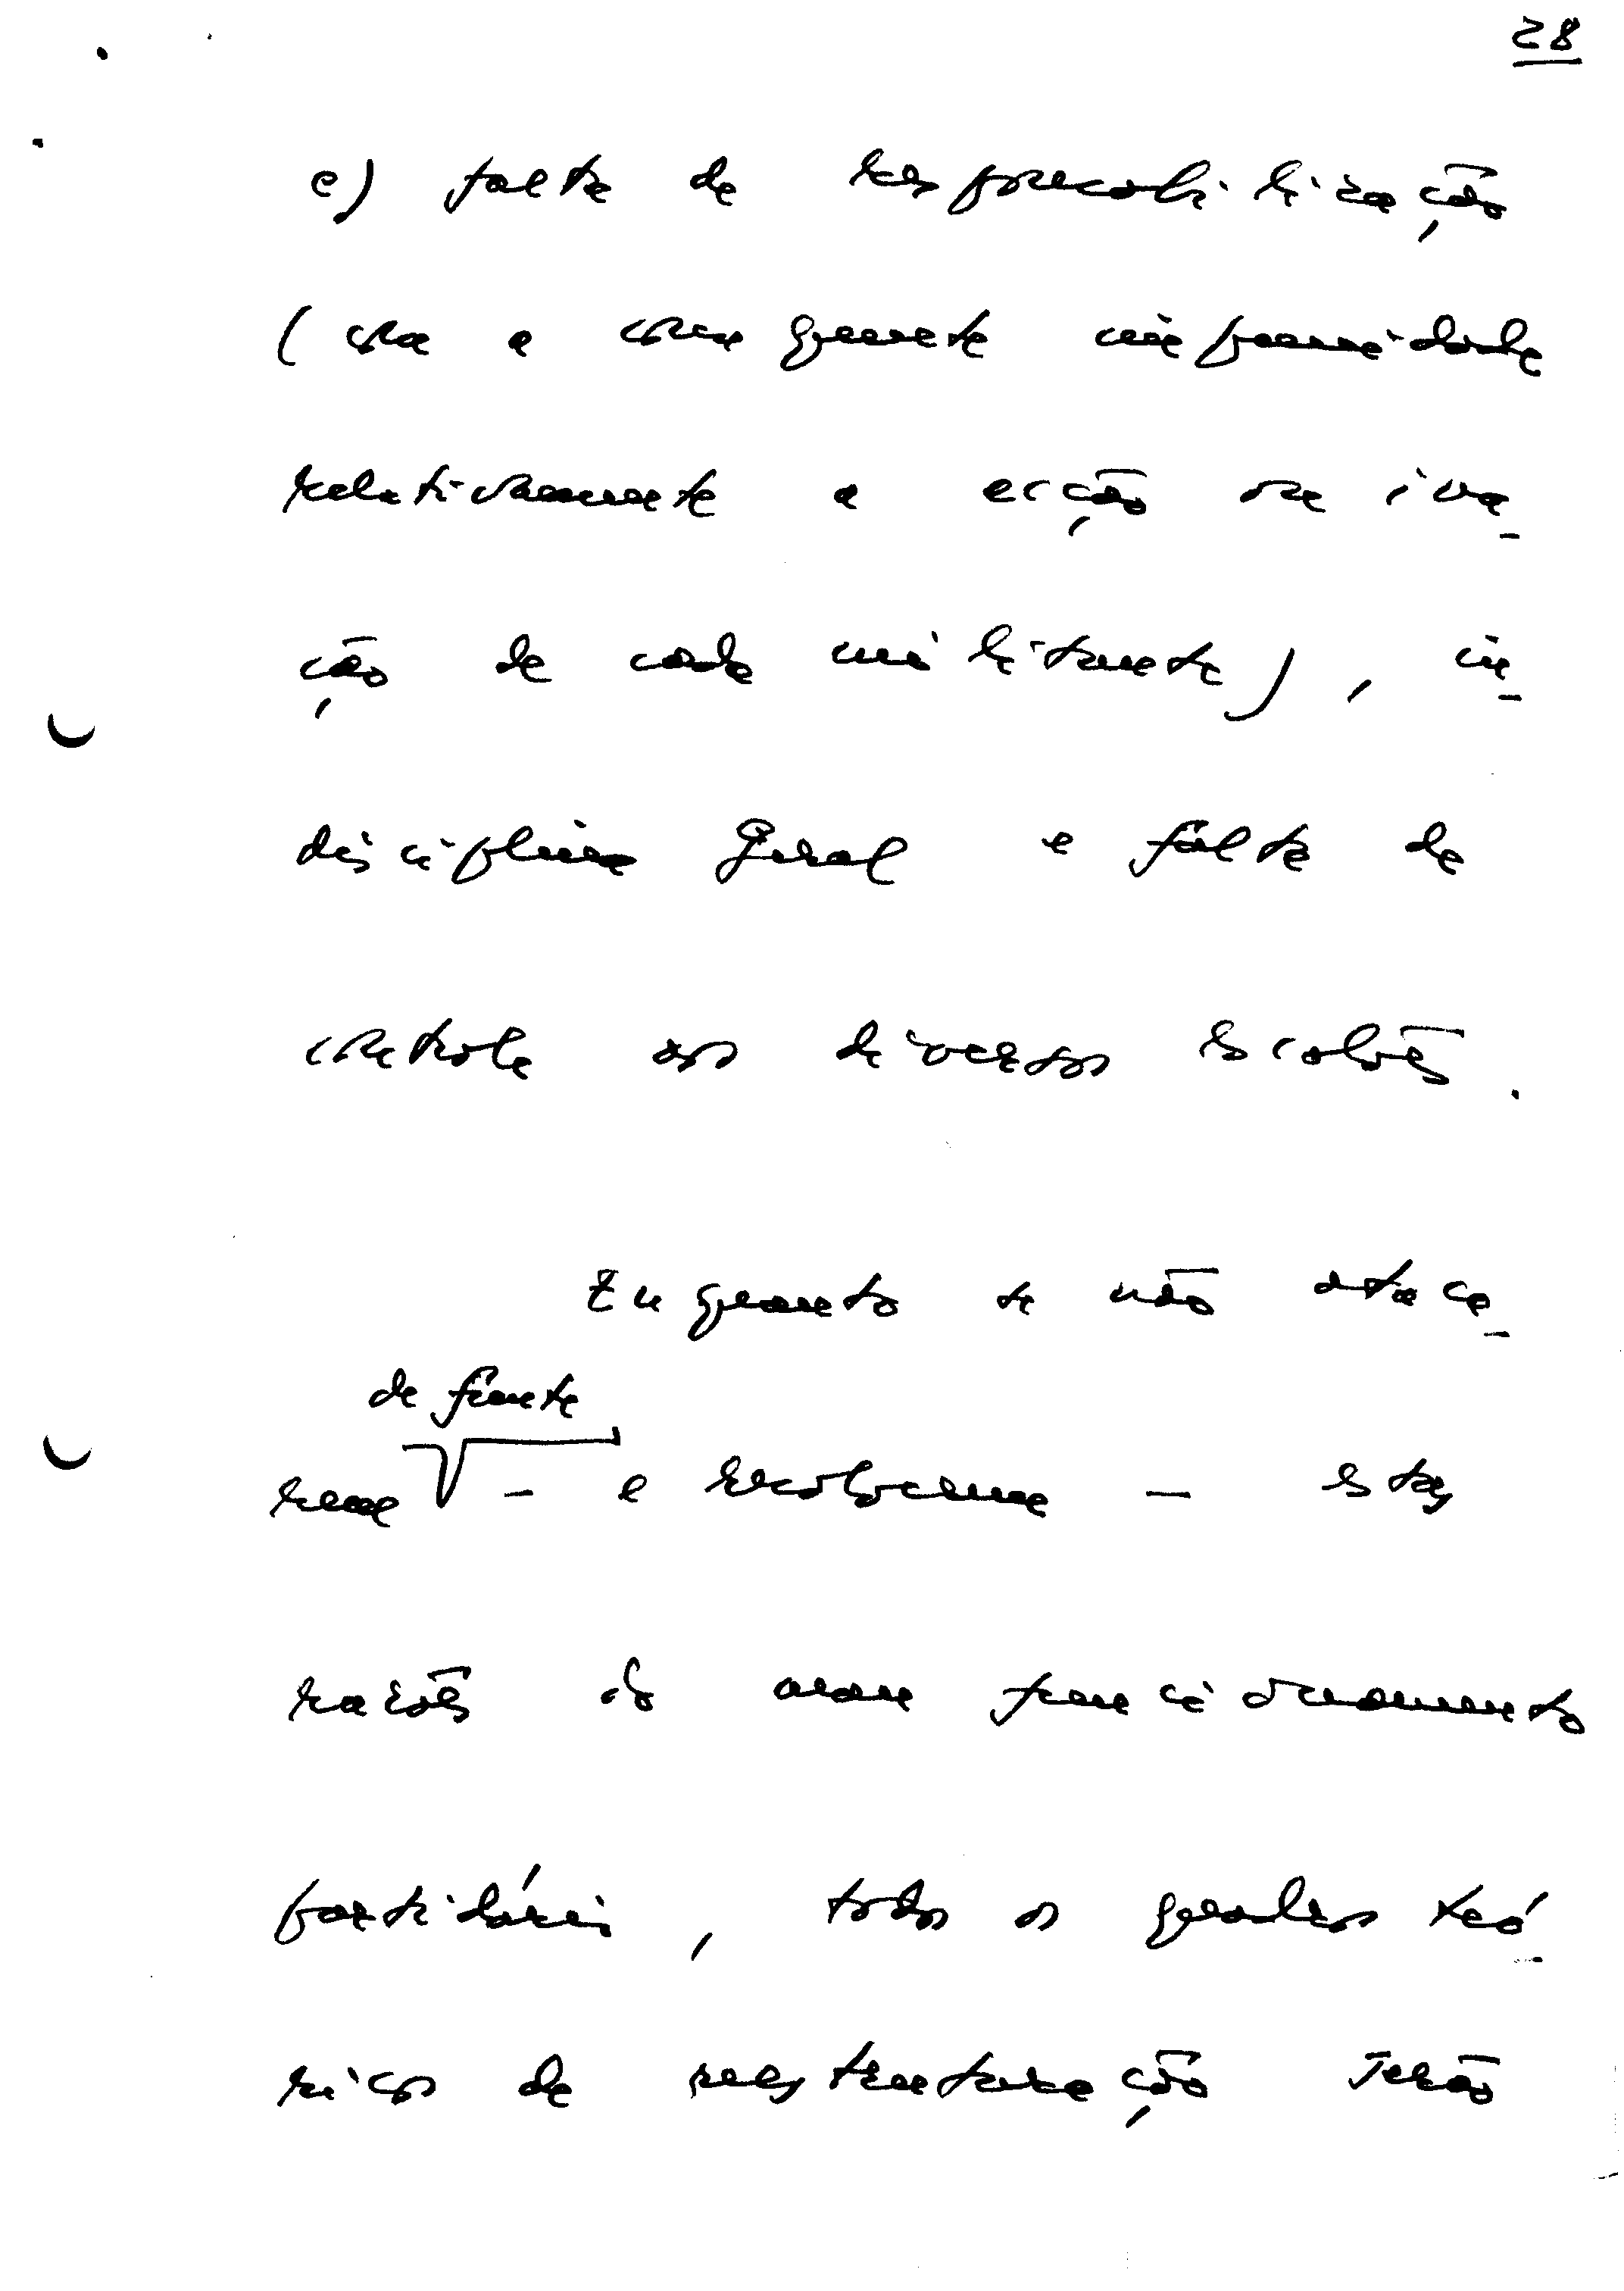 28
e) falta de responsabilização
(com a consequente impunidade
relativamente a acção ou ina-
ção de cada militante), in-
disciplina geral e falta de
controle aos diversos escalões.
Enquanto se não ataca-
de frente
rem - e resolverem - estas
razões do mau funcionamento
partidário, todos os quadros teó-
ricos de reestruturação serão